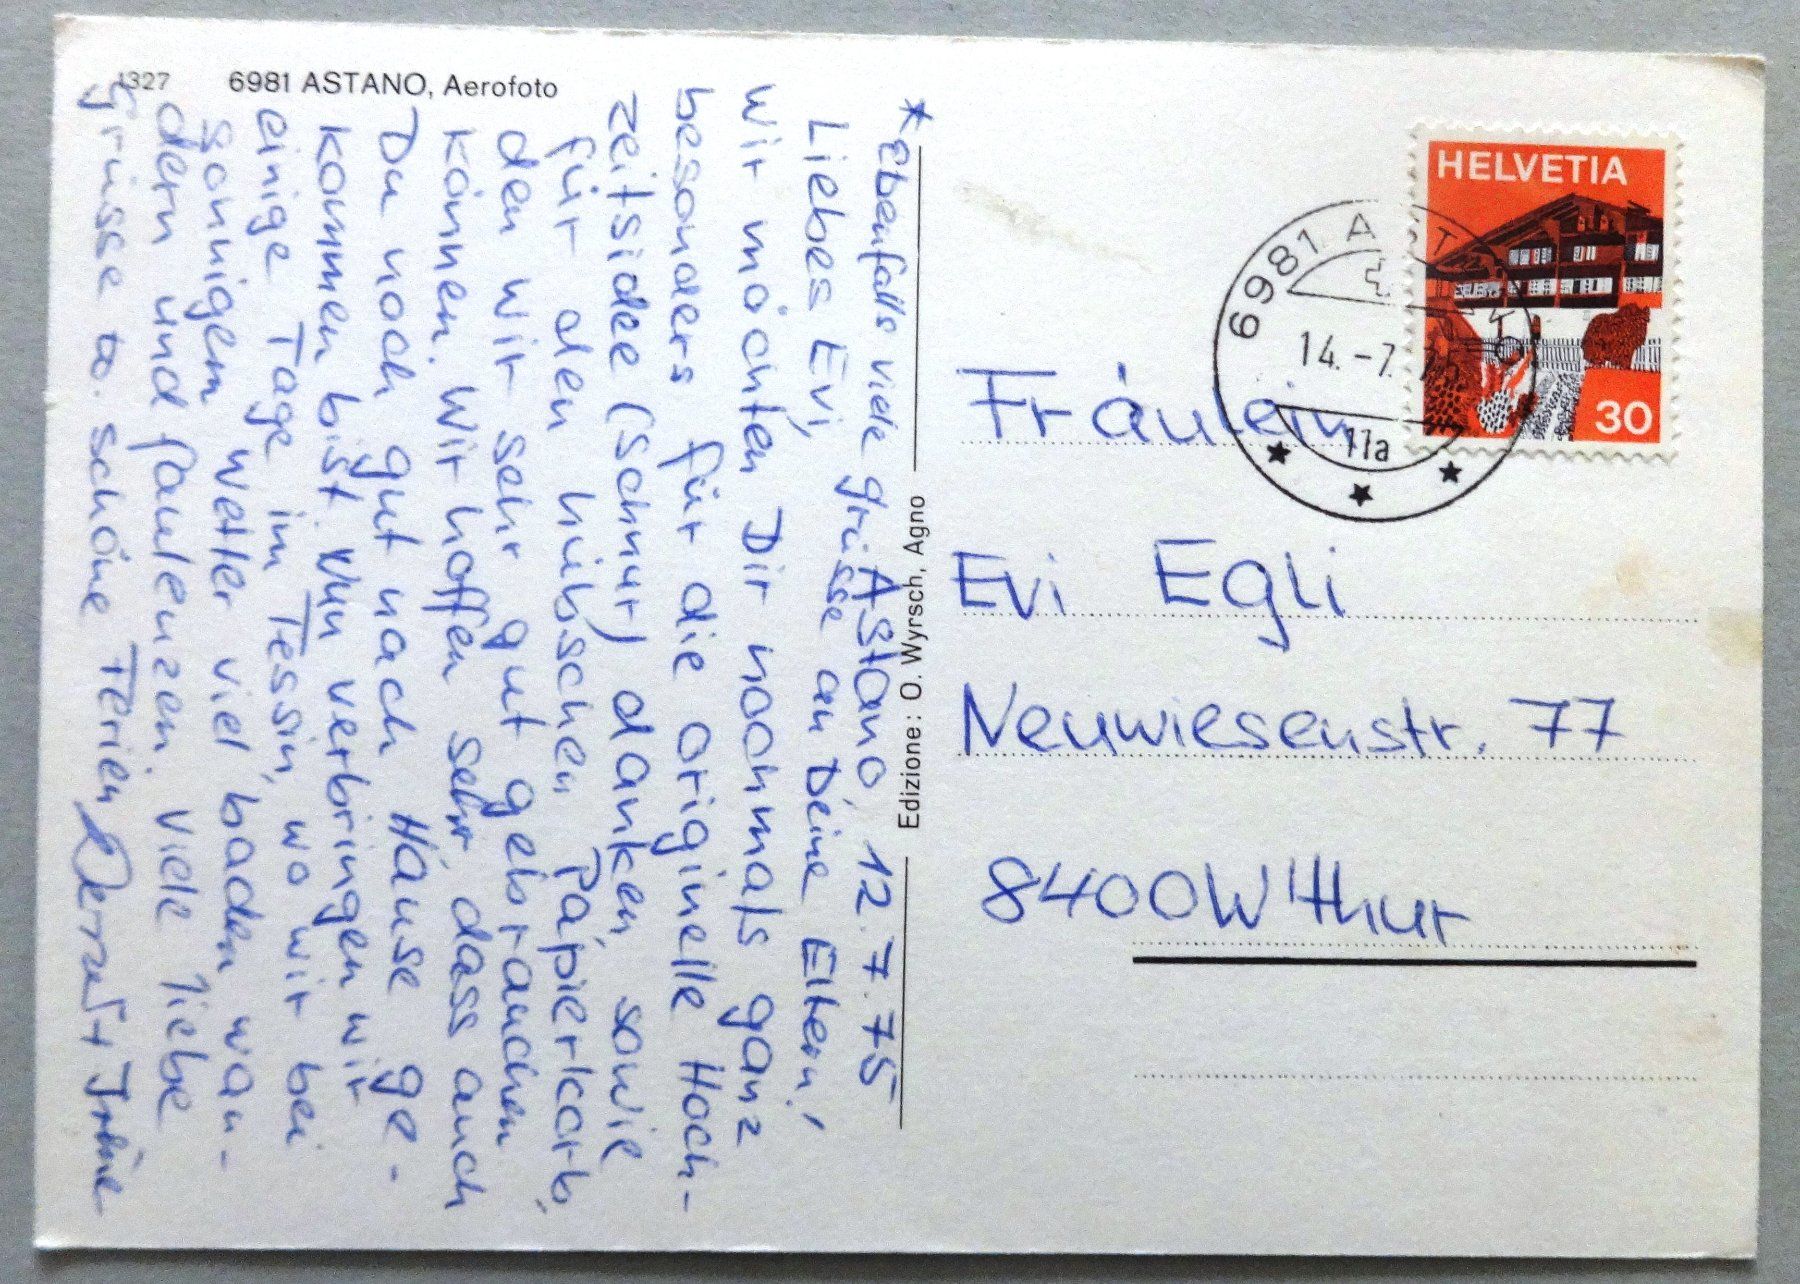 1327 6981 ASTANO, Aerofoto
*Ebenfalls viele grüsse an Deine Eltern!
Astano, 12.7.75
Liebes Evi,
Wir möchten Dir nochmals ganz
besonders für die originelle Hoch-
zeitsidee (Schnur) danken, sowie
für den hübschen Papierkorb,
den wir sehr gut gebrauchen
können. Wir hoffen sehr, dass auch
Du noch gut nach Hause ge-
kommen bist. Nun verbringen wir
einige Tage im Tessin, wo wir bei
sonnigem Wetter viel baden, wan-
dern und faulenzen. Viele liebe
Grüsse u. schöne Ferien
Irène
Edizione: O. Wyrsch, Agno
HELVETIA
30
6981 A
14.-7.75
11a
Fräulein
Evi Egli
Neuwiesenstr. 77
8400 W'thur